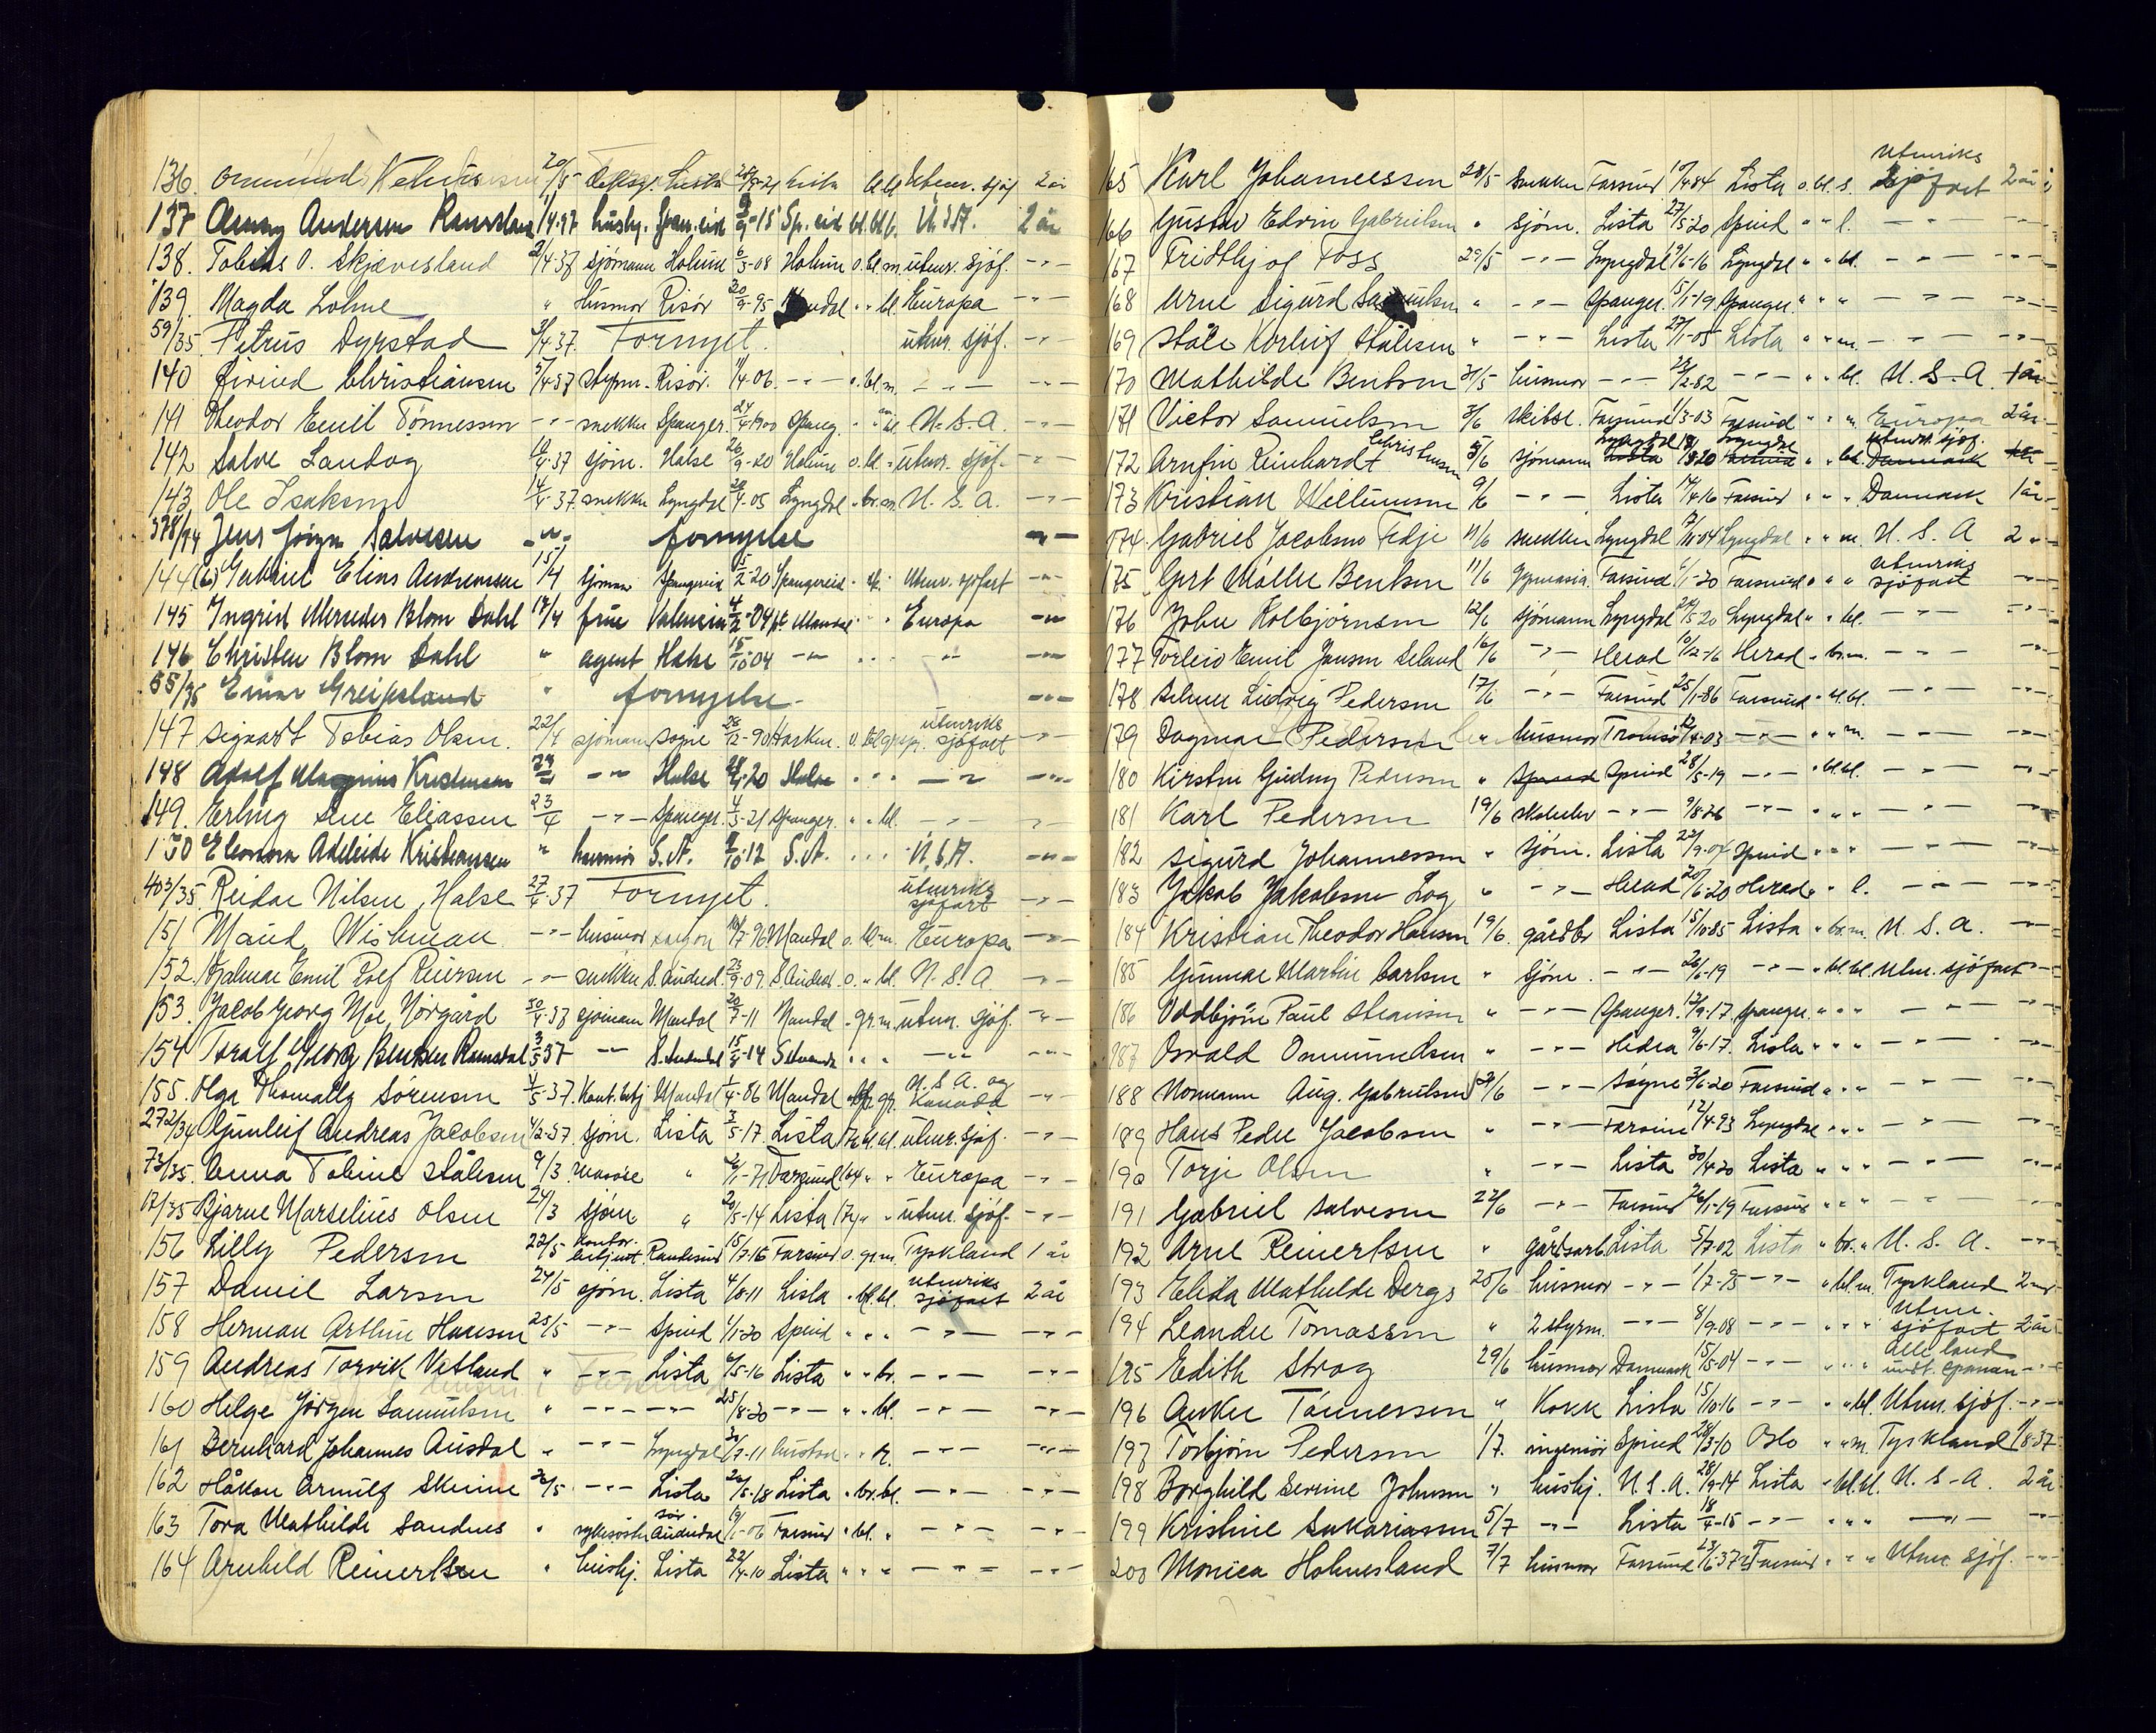 136. 20/5 Lista 2 år
137 Anny Andersen 1/4-37 husbg. Span.eid 15 Sp. eid bl. bl. U.S.A. 2 år
138. Tobias O. Skjævesland 2/4-37 sjømann Holum 6/3-08 Holum o. bl. m. utenr. sjøf. -"-
139. Magda Lohne " Husmor Risør 20/9-95 " " bl. Europa -"-
59/35. Petrus Dyrstad 3/4 37. Fornyet. utenr. sjøf. -"-
140 Øivind Christiansen 5/4-37 styrm. Risør. 11/4-06. -"- " bl. m. -"- -"-
141 Theodor Emil Tønnessen -"- snekker Spanger. 24/4-1900 Spang. " bl. U.S.A. -"-
142 Salve Landog 10/4-37 sjøm. Halse 26/9-20 Holum o. bl. " utenr. sjøf. -"-
143 Ole Isaksen 14/4-37 snekker Lyngdal 4-05 Lyngdal " br. m. U.S.A. -"-
378/34 Jens Jørgen Salvesen -"- fornyelse -"-
144 Gabriel Elias Andreassen 15/4 sjømann Spangereid 15/2-20 Spangereid " utenr. sjøfart -"-
145 Ingrid Mercedes Blom Dahl 17/4 frue Valencia 4/2-04 Mandal " " Europa -"-
146 Christen Blom Dahl " agent Halse 15/10-04 -"- " " " -"- -"-
55/35 Einar Greipsland " fornyelse -"-
147 Sigvart Tobias Olsen. 22/4 sjømann Søgne 28/12-90 o. bl. utenriks sjøfart -"-
148 Adolf Magnus Kristensen 22/4 -"- Halse 20 Halse " " " -"- -"-
149. Erling Eliassen 23/4 -"- Spanger. 4/3-21 Spanger. " " bl. -"- -"-
150 Eleonora Adeleide Kristiansen " husmor S.A. 10-12 S.A. " " " U.S.A. -"-
403/35. Reidar Nilsen, Halse 27/4-37 Fornyet. utenriks sjøfart -"-
151 Maud Wishman -"- husmor 7-96 Mandal o. bl. m. Europa -"-
152. Hjalmar Emil Rolf Reiersen -"- snekker S. Audned. 23/9-09. S. Audned. o. " bl. U.S.A -"-
153. Jacob Georg Moe Nørgård 30/4-37 sjømann Mandal 20/7-11 Mandal " gr. m. utenr. sjøf. -"-
154 Toralf Georg 3/5-37 -"- S. Audnedal 15/4-14 " " " -"- -"-
155. Olga Thomally Sørensen 4/5-37. Kont. betj Mandal 1/4-86 Mandal gr. U.S.A. og Kanada -"-
272/34 Gunleif Andreas Jacobsen 4/2-37. sjøm. Lista 3/5-17. Lista bl. bl. utenr. sjøf. -"-
73/35. Anna Tobine Stålesen 9/3. " 71 Farsund " " Europa -"-
12/35 Bjarne Marselius Olsen 24/3 sjøm " 20/5-14 Lista " " utenr. sjøf. -"-
156 Lilly Pedersen 22/5 kontor betjent Randesund 15/7-15 Farsund o. gr. m. Tyskland 1 år
157 Daniel Larsen 24/5 sjøm. Lista 4/8-11 Lista " bl. bl. utenriks sjøfart 2 år
158 Herman Arthur Hansen 25/5 -"- Spind 4/1-20 Spind " " " -"- -"-
159 Andreas Torvik Vatland " -"- Lista 6/5-16 Lista " " br. -"- -"-
160 Helge Jørgen Samuelsen " -"- -"- 25/8-20 -"- " " bl. -"- -"-
161 Bernhard Johannes Ausdal " -"- Lyngdal 30/7-11 " " -"- -"-
162 Håkon Arnulf 26/5 -"- Lista 26/5-18 Lista " br. bl. -"- -"-
163 Tora Mathilde Sandnes " sykesøster Sør Audnedal 06 Farsund " bl. " -"- -"-
164 Arnhild Reinertsen " hushj. Lista 22/4-10 Lista " " " -"- -"-
165 Karl Johannessen 28/5 Snekker Farsund 10/4 84 Lista o. bl. s. utenriks sjøfart 2 år
166 Gustav Edvin Gabrielsen " sjøm. Lista 27/5-20 Spind " " l. -"- -"-
167 Fridthjof Foss 29/5 -"- Lyngdal 9/6-16 Lyngdal " " bl. -"- -"-
168 Arne Sigurd " -"- Spanger. 15/1-19 Spanger. " " " -"- -"-
169 Ståle Korleif Ståleson " -"- Lista 27/1-05 Lista " " m. -"- -"-
170 Mathilde Bentsen 31/5 husmor -"- 2-82 -"- " " bl. U.S.A. 1 år
171 Victor Samuelsen 3/6 skibse. Farsund 1/3-03 Farsund " " " Europa 2 år
172 Arnfin Reinhardt Christensen 5/6 sjømann Lyngdal Lista 18/8 20 Lyngdal " " bl. utenr. sjøf. Danmark
173 Kristian Willumsen 9/6 -"- Lista 14/4-16 Farsund " " " Danmark 1 år
174. Gabriel Jacobsen Fedje 11/6 snekker Lyngdal 04 Lyngdal " " m. U.S.A 2 "
175 Gert Møller Bentsen 11/6 Gymnasia. Farsund 1-20 Farsund " " " utenriks sjøfart -"-
176 John Kolbjørnsen 12/6 sjømann Lyngdal 5-20 Lyngdal " " bl. -"- -"-
177 Torleiv Emil Jansen Seland 16/6 -"- Herad 10/12-16 Herad " br. m. -"- -"-
178 Selmer Ludvig Pedersen 17/6 -"- Farsund 25/1-86 Farsund " bl. bl. -"- -"-
179 Dagmar Pedersen " husmor Tromsø 4-03 -"- " " m. -"- -"-
180 Kirsten Gudny Pedersen " Spind 28/5-19 -"- " bl. bl. -"- -"-
181 Karl Pedersen 19/6 skoleelev -"- 9/8-26 -"- " " " -"- -"-
182 Sigurd Johannessen " sjøm. Lista 22/9-07 Spind " " " -"- -"-
183 Jakob Jakobsen Log " -"- Herad 20/6-20 Herad " " l. -"- -"-
184 Kristian Theodor Hansen 19/6. gårdbr Lista 15/10 85 Lista " br. m. U.S.A. -"-
185 Gunnar Martin Carlsen " sjøm. -"- 26/6-19 -"- " bl. bl. utenr. sjøfart -"-
186 Oddbjørn Paul " -"- Spanger. 12/9-17 Spanger. " " " -"- -"-
187 Osvald Osmundsen " -"- Hidra 9/6-17. Lista " " " -"- -"-
188 Normann Aug. Gabrielsen 21/6 -"- Søgne 3/6-20 Farsund " " " -"- -"-
189 Hans Peder Jacobsen " -"- Farsund 12/4-93 Lyngdal " " " -"- -"-
190 Torje Olsen " -"- Lista 30/4-20 Lista " " " -"- -"-
191 Gabriel Salvesen 22/6 -"- Farsund 26/1-19 Farsund " " " -"- -"-
192 Arne Reinertsen " gårdsarb. Lista 5/7-02 Lista " br. " U.S.A. -"-
193 Elida Mathilde Dergs 25/6 husmor -"- 1/7-95 -"- " bl. m. Tyskland 2
194 Leander Tomassen " 2 styrm. -"- 8/9-08 -"- " " " utenr. sjøfart 2 år
195 Edith Strag 29/6 husmor Danmark 15/5-04 -"- " " " alle land unt. spanan -"-
196 Anker Tønnessen " Kokk Lista 15/10-16 -"- " " bl. Utenr. sjøf. -"-
197 Torbjørn Pedersen 1/7. ingeniør Spind 28/3-10 Oslo " " m. Tyskland 1/8-37
198 Borghild Serine Johnsen " hushj. U.S.A. 28/9-14 Lista " bl. bl. U.S.A. 2 år
199 Kristine Sakariassen 5/7 -"- Lista 18/4-15 -"- " " " -"- -"-
200 Monica Holmesland 7/7 husmor Farsund Farsund " " " Utenr. sjøf. -"-